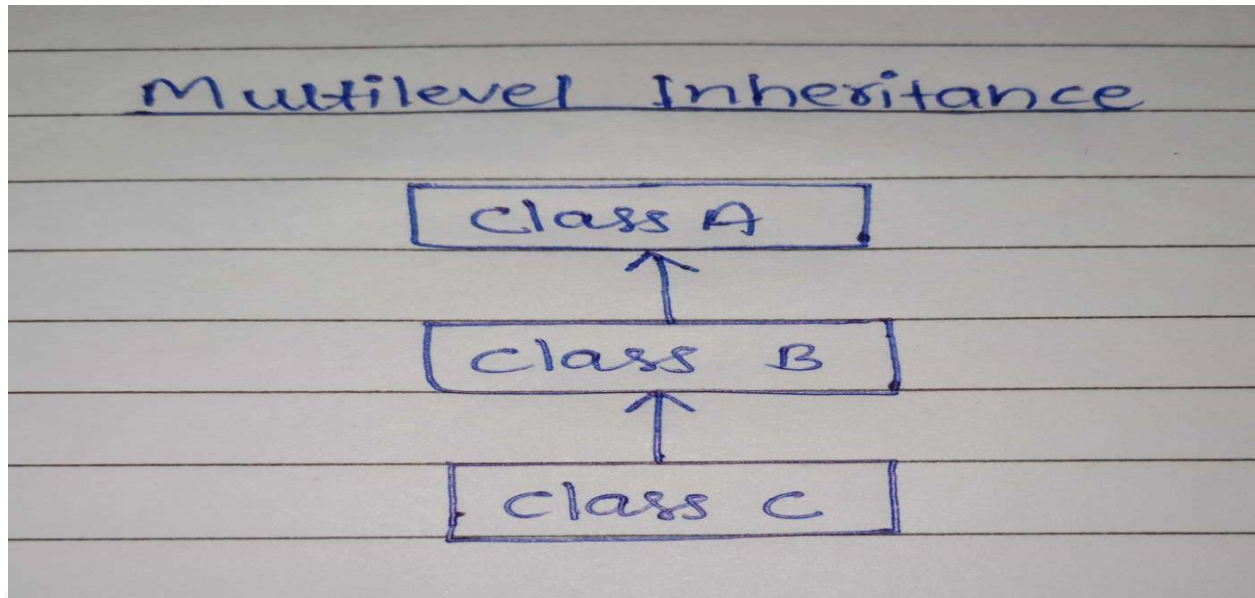 Multilevel Inheritance
Class A
Class B
Class C